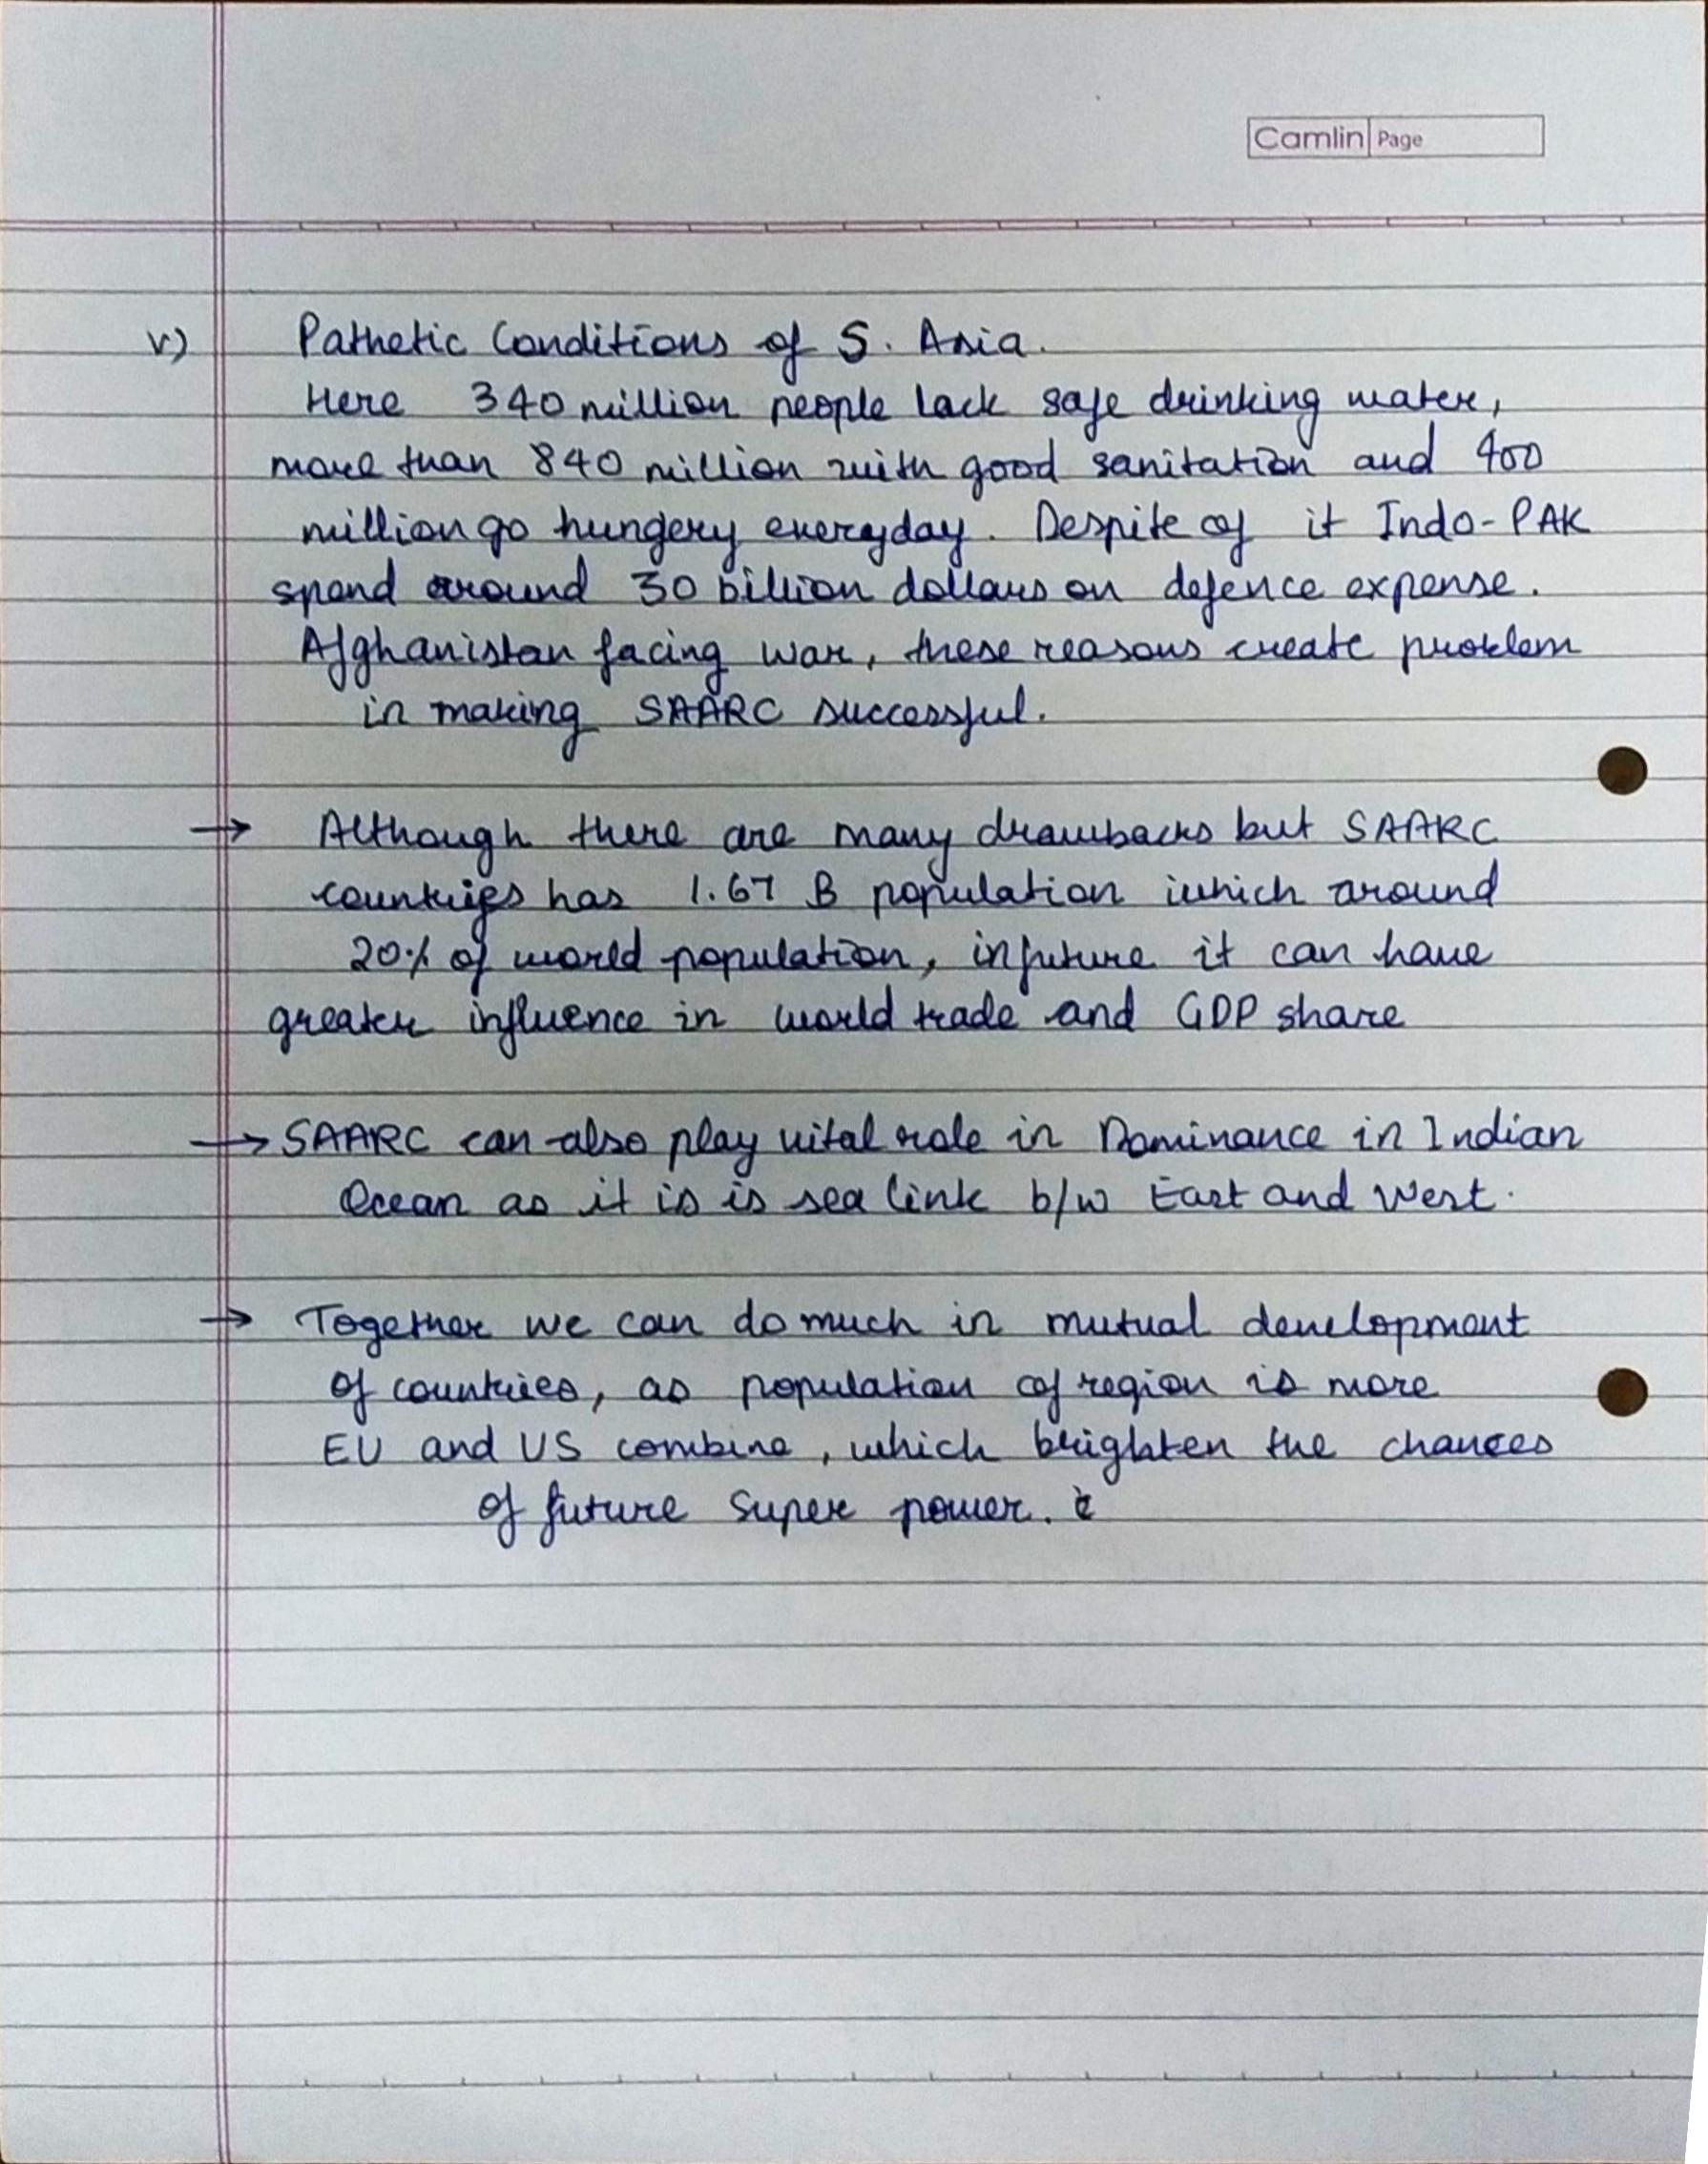 Camlin Page
v) Pathetic Conditions of S. Asia.
Here 340 million people lack safe drinking water,
more than 840 million with good sanitation and 400
million go hungery everyday. Despite of it Indo-PAK
spend around 30 billion dollars on defence expense.
Afghanistan facing war, these reasons create problem
in making SAARC successful.
→ Although there are many drawbacks but SAARC
countries has 1.67 B population which around
20% of world population, in future it can have
greater influence in world trade and GDP share
→ SAARC can also play vital role in Dominance in Indian
Ocean as it is is sea link b/w East and West.
→ Together we can do much in mutual development
of countries, as population of region is more
EU and US combine, which brighten the chances
of future super power.